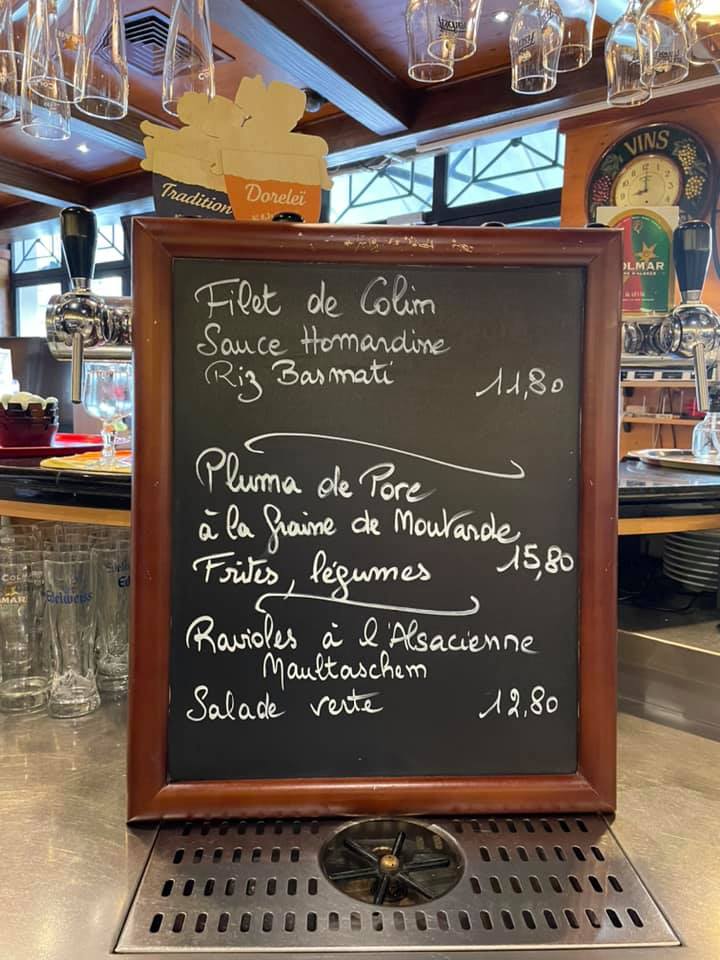 Tradition
Doreleï
VINS
COLMAR
Filet de Colin
Sauce Homardine
Riz Basmati 11,80
Pluma de Porc
à la graine de Moutarde
Frites, légumes 15,80
Ravioles à l'Alsacienne
Maultaschen
Salade verte 12,80
COLMAR
Edelweiss